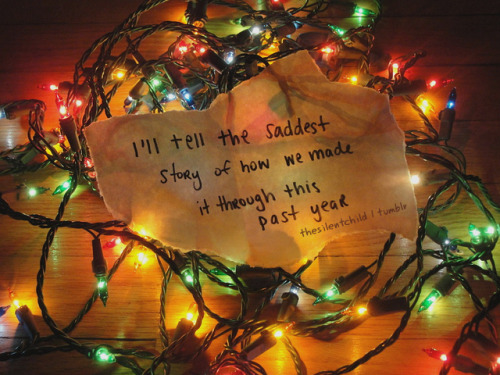 I'll tell the saddest
story of how we made
it through this
past year
thesilentchild | tumblr